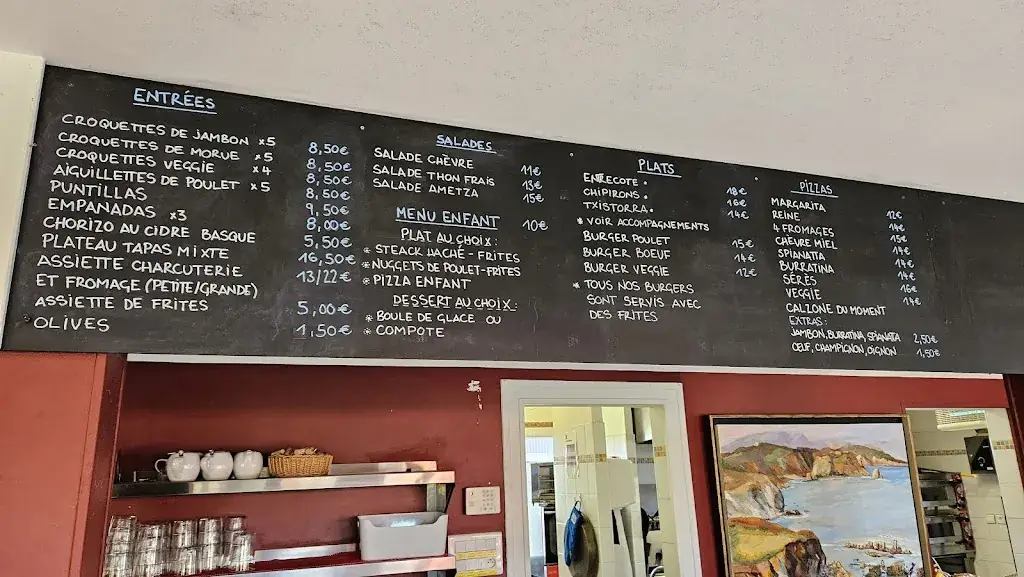 ENTRÉES
CROQUETTES DE JAMBON x5 8,50€
CROQUETTES DE MORUE x5 8,50€
CROQUETTES VEGGIE x4 8,50€
AIGUILLETTES DE POULET x5 8,50€
PUNTILLAS 9,50€
EMPANADAS x3 8,00€
CHORIZO AU CIDRE BASQUE 5,50€
PLATEAU TAPAS MIXTE 16,50€
ASSIETTE CHARCUTERIE 13/22€
ET FROMAGE (PETITE/GRANDE)
ASSIETTE DE FRITES 5,00€
OLIVES 1,50€
SALADES
SALADE CHÈVRE 11€
SALADE THON FRAIS 13€
SALADE AMETZA 15€
MENU ENFANT 10€
PLAT AU CHOIX:
* STEACK HACHÉ - FRITES
* NUGGETS DE POULET-FRITES
* PIZZA ENFANT
DESSERT AU CHOIX:
* BOULE DE GLACE OU
* COMPOTE
PLATS
ENTRECOTE * 18€
CHIPIRONS * 16€
TXISTORRA * 14€
* VOIR ACCOMPAGNEMENTS
BURGER POULET 15€
BURGER BOEUF 14€
BURGER VEGGIE 12€
* TOUS NOS BURGERS
SONT SERVIS AVEC
DES FRITES
PIZZAS
MARGARITA 12€
REINE 14€
4 FROMAGES 15€
CHÈVRE MIEL 14€
SPIANATA 14€
BURRATINA 14€
SÉRES 16€
VEGGIE 14€
CALZONE DU MOMENT
EXTRAS:
JAMBON, BURRATINA, SPIANATA 2,50€
OEUF, CHAMPIGNON, OIGNON 1,50€